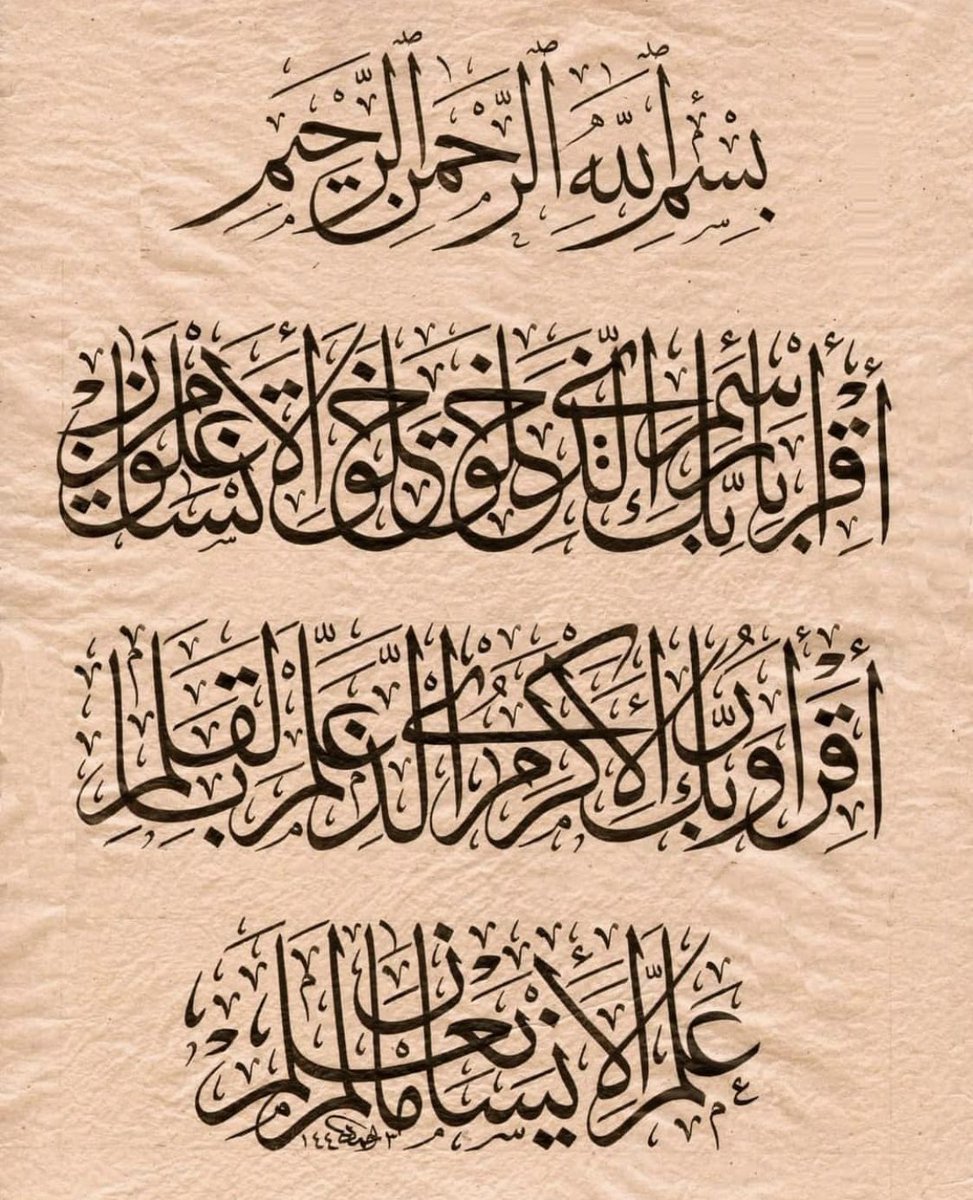 بِسْمِ اللَّهِ الرَّحْمَنِ الرَّحِيمِ
اقْرَأْ بِاسْمِ رَبِّكَ الَّذِي خَلَقَ خَلَقَ الْإِنْسَانَ مِنْ عَلَقٍ
اقْرَأْ وَرَبُّكَ الْأَكْرَمُ الَّذِي عَلَّمَ بِالْقَلَمِ
عَلَّمَ الْإِنْسَانَ مَا لَمْ يَعْلَمْ